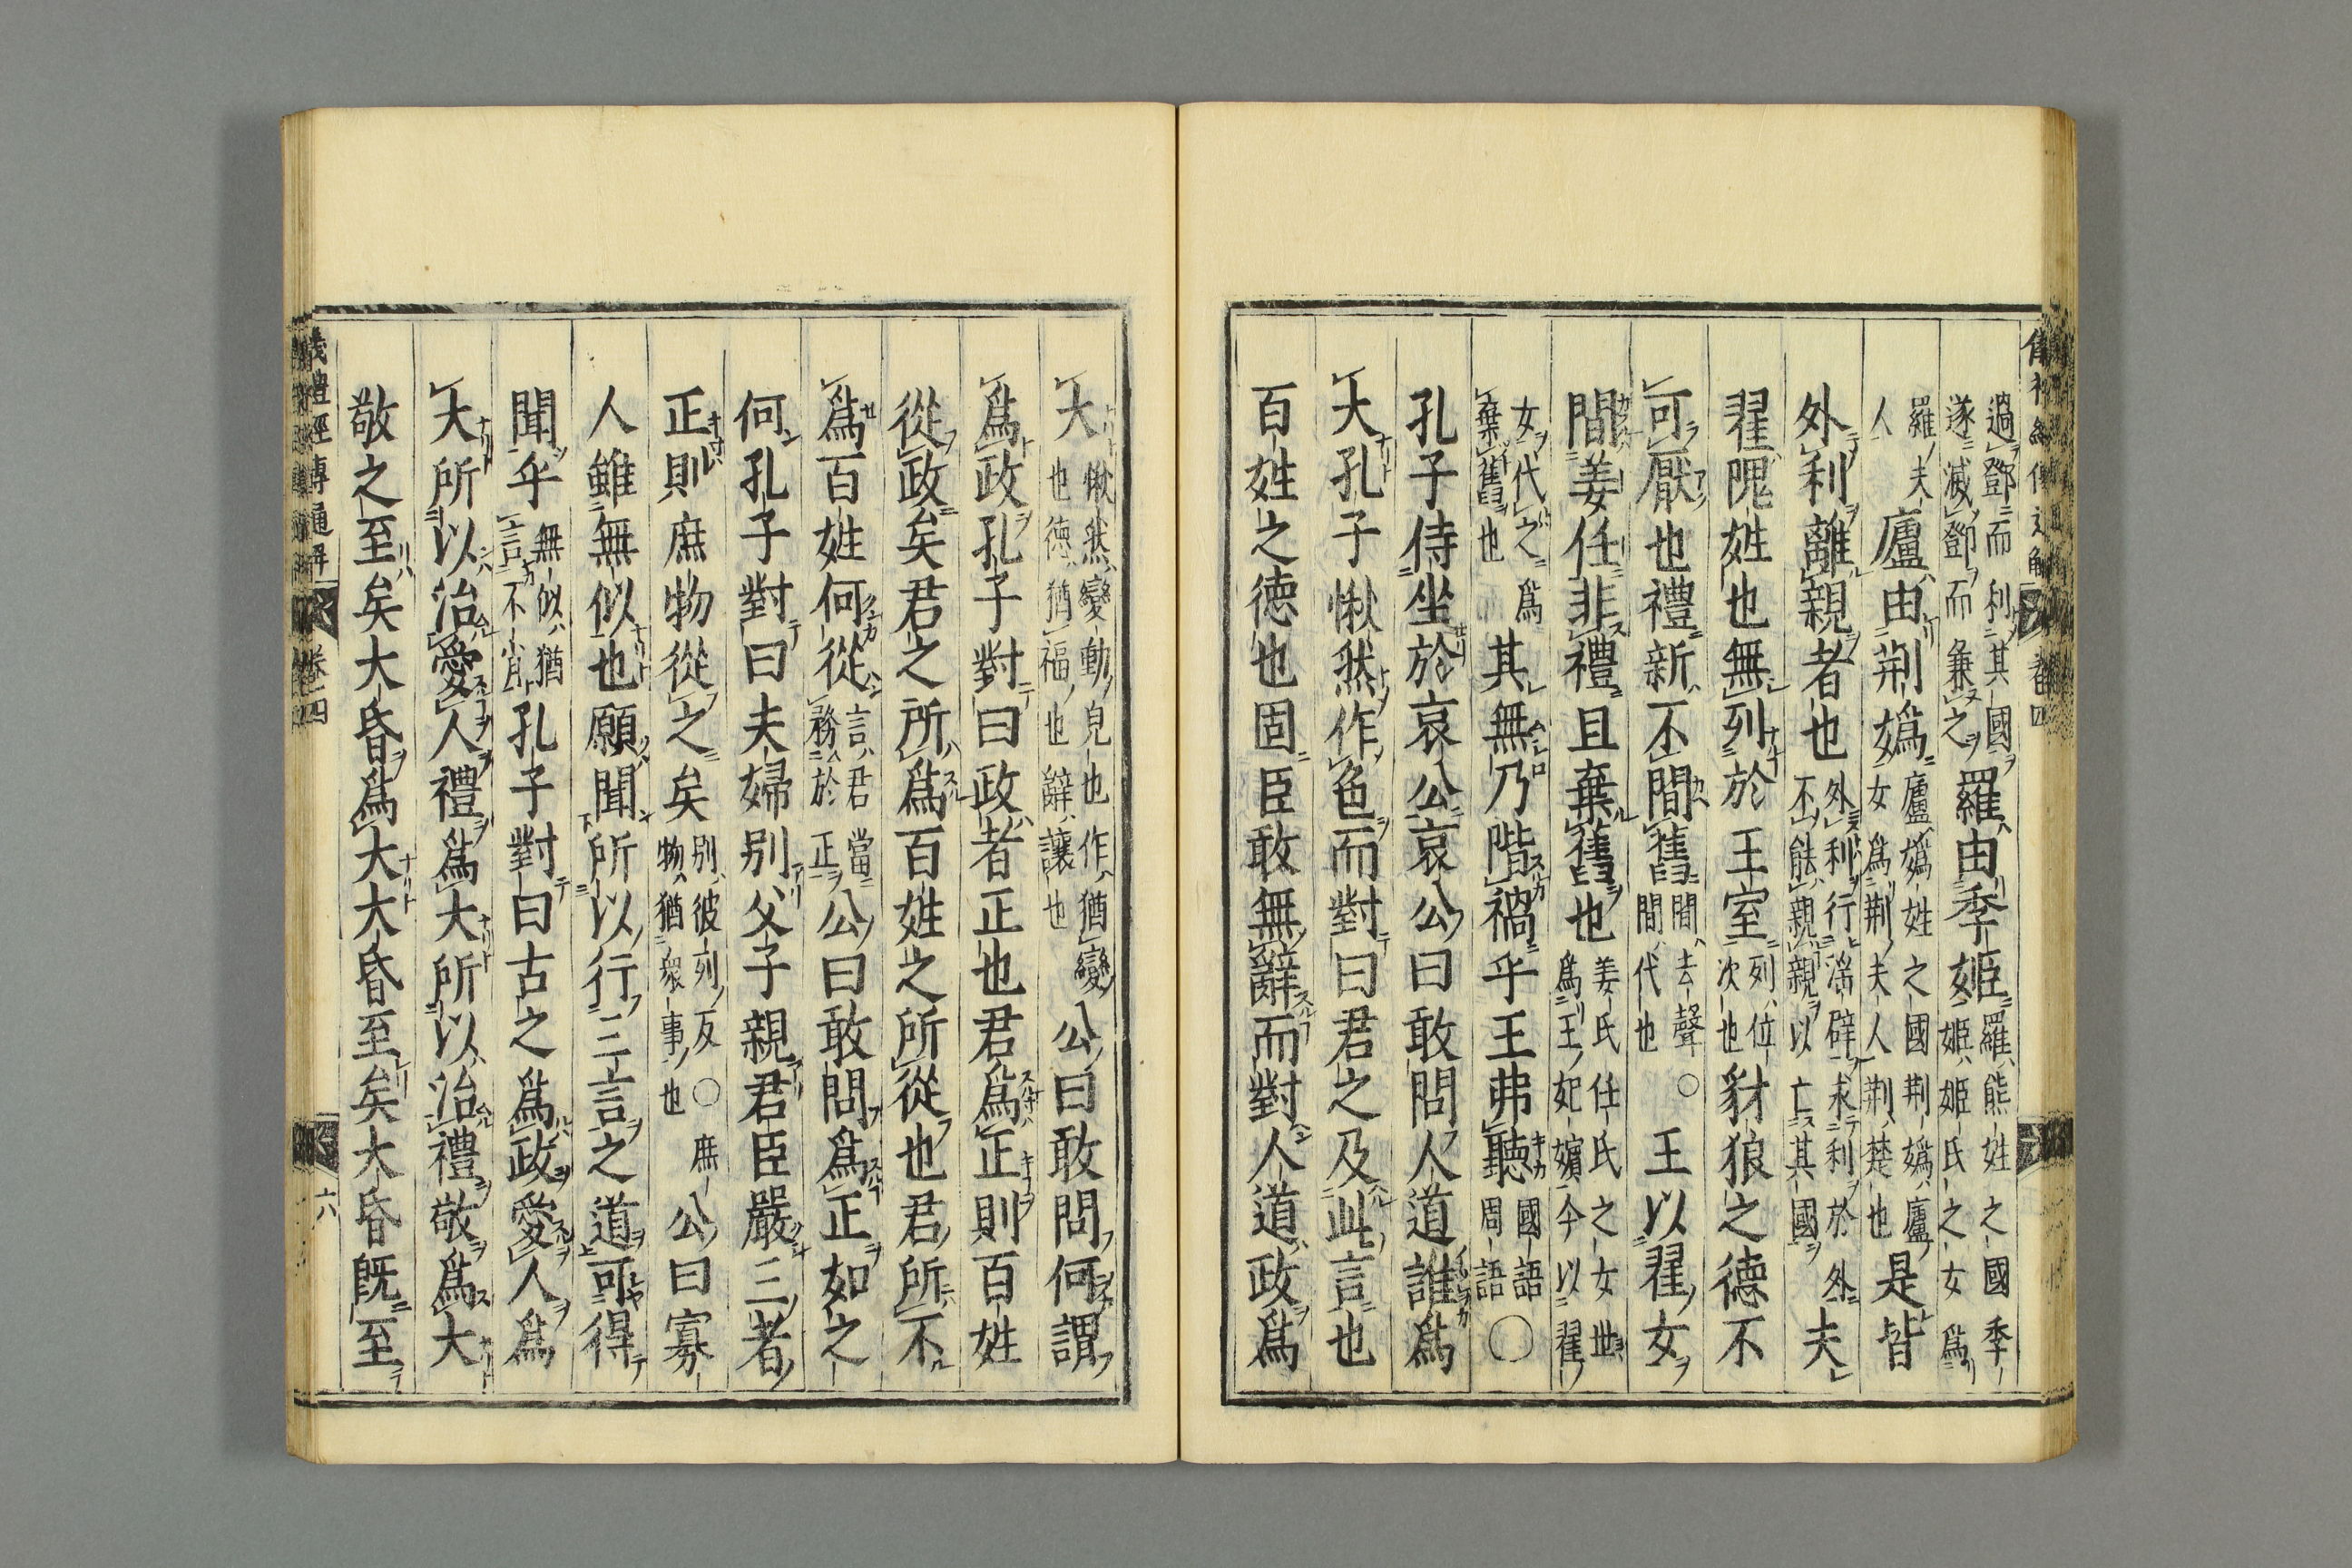 過鄧而利其國
遂滅鄧而兼之羅由季姬羅熊姓之國季
姬姬氏之女爲
羅夫
人廬由荊嬀廬嬀姓之國荊嬀廬
女爲荊夫人荊楚也是皆
外利離親者也外利行淫辟求利於外
不能親親以亡其國夫
翟隗姓也無列於王室列位
次也豺狼之德不
可厭也禮新不間舊間去聲○
間代也王以翟女
間姜任非禮且棄舊也姜氏任氏之女世
爲王妃嬪今以翟
女代之爲
棄舊也其無乃階禍乎王弗聽國語
周語○
孔子侍坐於哀公哀公曰敢問人道誰爲
大孔子愀然作色而對曰君之及此言也
百姓之德也固臣敢無辭而對人道政爲
大愀然變動皃也作猶變
也德猶福也辭讓也公曰敢問何謂
爲政孔子對曰政者正也君爲正則百姓
從政矣君之所爲百姓之所從也君所不
爲百姓何從言君當
務於正公曰敢問爲正如之
何孔子對曰夫婦別父子親君臣嚴三者
正則庶物從之矣別彼列反○庶
物猶衆事也公曰寡
人雖無似也願聞所以行三言之道可得
聞乎無似猶
言不肖孔子對曰古之爲政愛人爲
大所以治愛人禮爲大所以治禮敬爲大
敬之至矣大昏爲大大昏至矣大昏既至
儀禮經傳通解 卷四 六